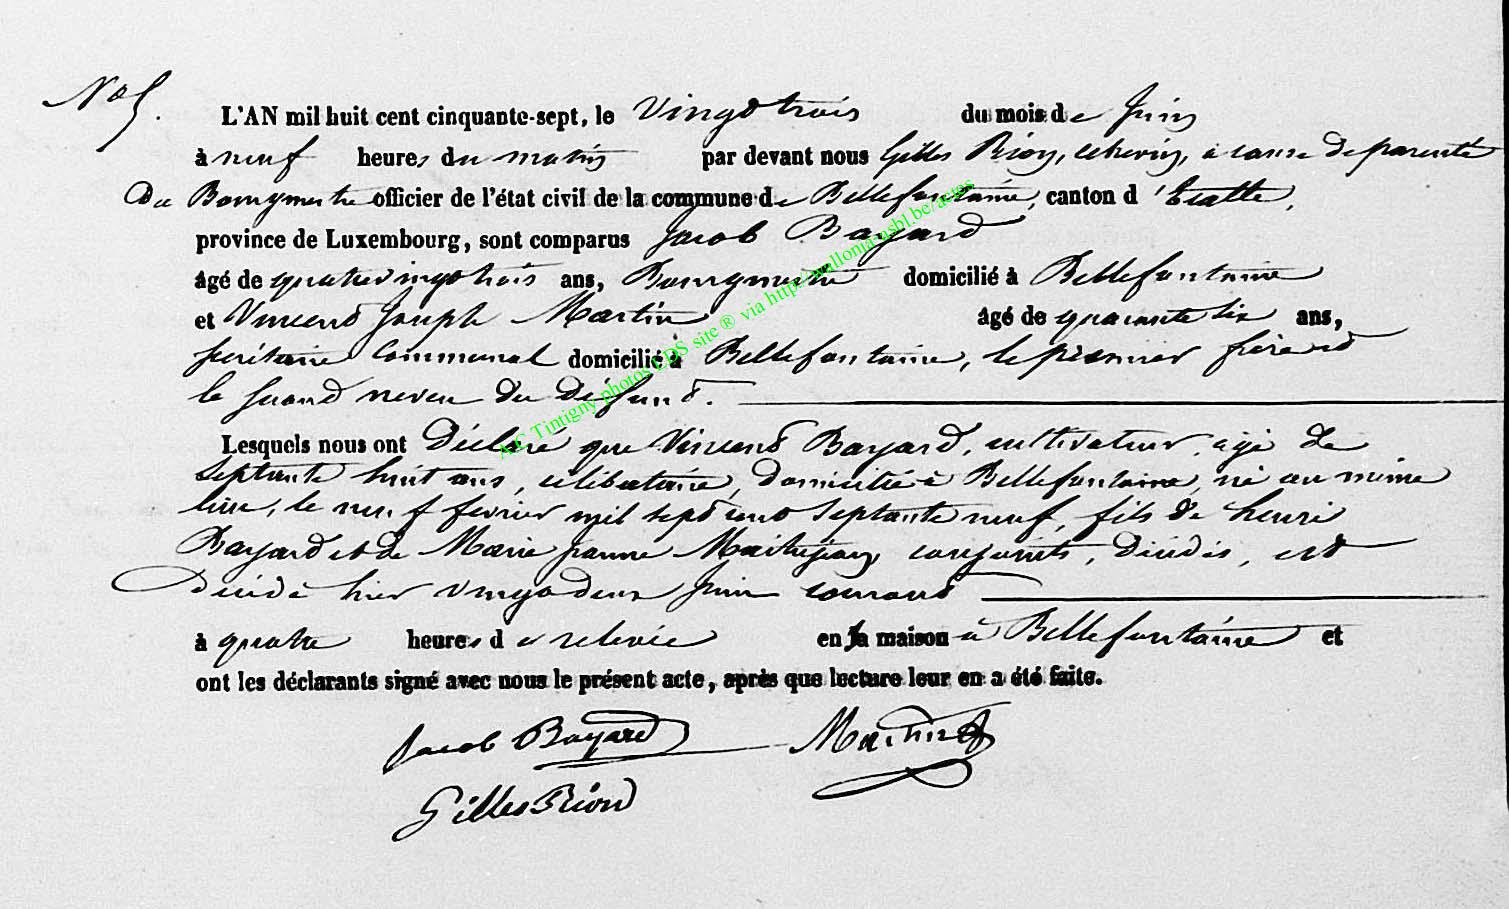 No 5.
L'AN mil huit cent cinquante-sept, le vingt trois du mois de Juin
à neuf heures du matin par devant nous Gilles Rion, échevin, à cause de parenté
du Bourgmestre officier de l'état civil de la commune de Bellefontaine, canton d'Etalle,
province de Luxembourg, sont comparus Jacob Bayard
âgé de quatrevingt trois ans, Bourgmestre domicilié à Bellefontaine
et Vincend Joseph Martin âgé de quarante six ans,
secrétaire communal domicilié à Bellefontaine, le premier frère et
le second neveu du défunt.
Lesquels nous ont déclaré que Vincend Bayard, cultivateur, agé de
septante huit ans, célibataire, domicilié à Bellefontaine, né au même
lieu, le neuf février mil sept cent septante neuf, fils de henri
Bayard et de Marie jeanne conjoints, décédés, est
décédé hier vingt deux juin courant
à quatre heures de relevée en la maison à Bellefontaine et
ont les déclarants signé avec nous le présent acte, après que lecture leur en a été faite.
Jacob Bayard Martin
Gilles Rion
A.C Tintigny photos LDS site ® via http://wallonia-asbl.be/actes